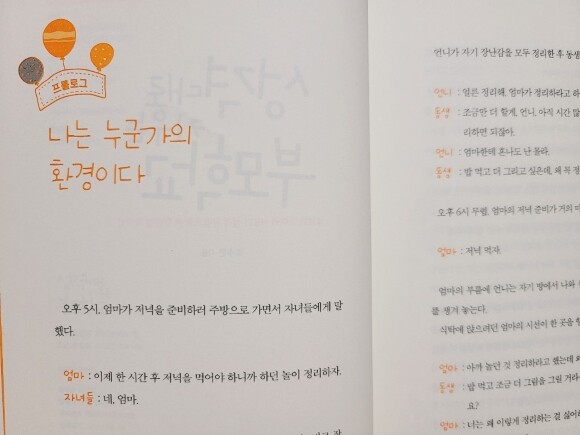 프롤로그
나는 누군가의
환경이다
오후 5시, 엄마가 저녁을 준비하러 주방으로 가면서 자녀들에게 말
했다.
엄마 : 이제 한 시간 후 저녁을 먹어야 하니까 하던 놀이 정리하자.
자녀들 : 네, 엄마.
언니가 자기 장난감을 모두 정리한 후 동생
언니 : 얼른 정리해, 엄마가 정리하라고 하
동생 : 조금만 더 할게, 언니. 아직 시간 많
리하면 되잖아.
언니 : 엄마한테 혼나도 난 몰라.
동생 : 밥 먹고 더 그리고 싶은데, 왜 꼭 정
오후 6시 무렵, 엄마의 저녁 준비가 거의 마
엄마 : 저녁 먹자.
엄마의 부름에 언니는 자기 방에서 나와
를 챙겨 놓는다.
식탁에 앉으려던 엄마의 시선이 한 곳을 향
엄마 : 아까 놀던 것 정리하라고 했는데 왜
동생 : 밥 먹고 조금 더 그림을 그릴 거라
요?
엄마 : 너는 왜 이렇게 정리하는 걸 싫어하